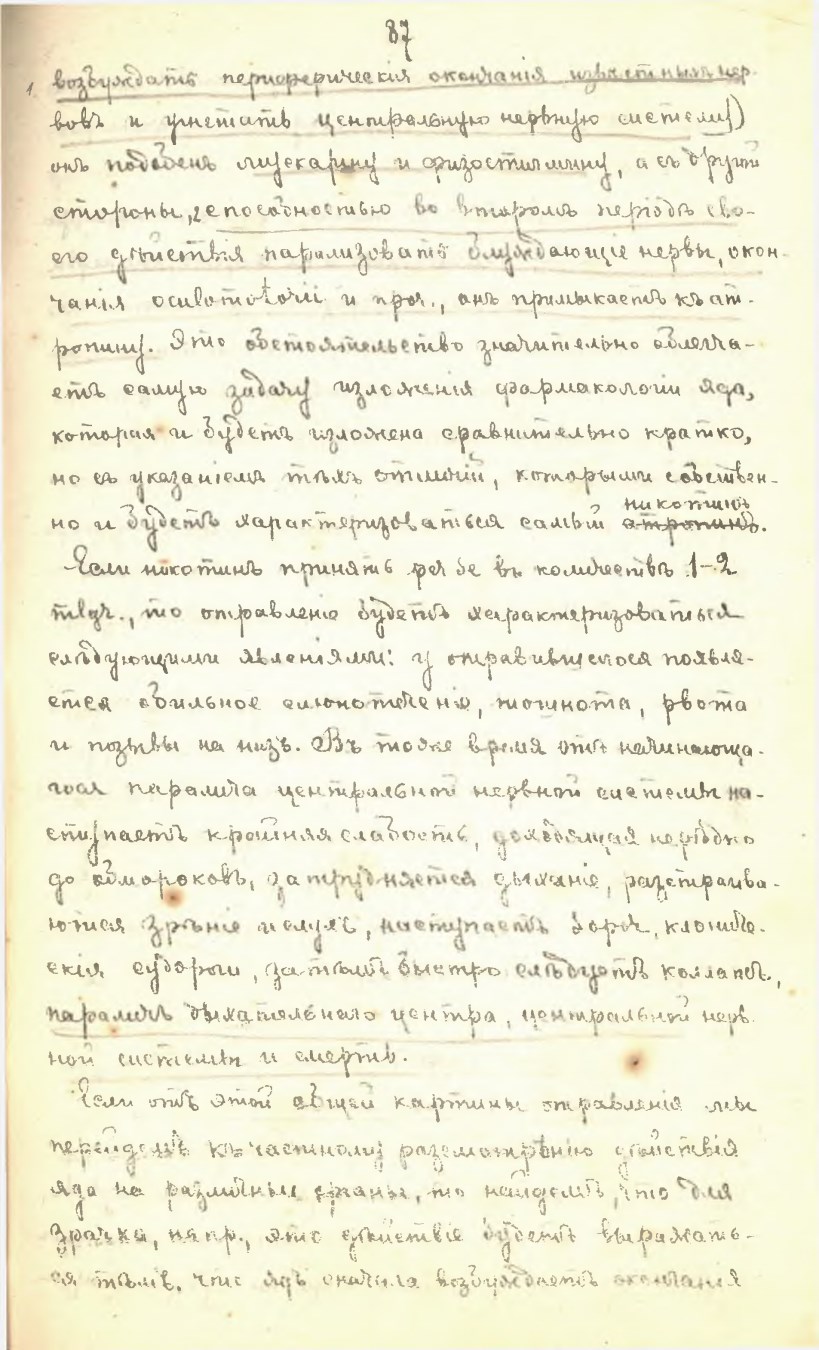 87
1 возбуждать периферическія окончанія извѣстныхъ нер-
вовъ и угнетать центральную нервную систему)
онъ подобенъ мускарину и физостигмину, а съ другой
стороны, 2 способностью во второмъ періодѣ сво-
его дѣйствія парализовать блуждающіе нервы, окон-
чанія oculomotorii и проч., онъ примыкаетъ къ ат-
ропину. Это обстоятельство значительно облегча-
етъ самую задачу изложенія фармакологіи яда,
которая и будетъ изложена сравнительно кратко,
но съ указаніемъ тѣхъ отличій, которыми собствен-
но и будетъ характеризоваться самый никотинъ атропинъ.
Если никотинъ принятъ per os въ количествѣ 1-2
mlgr., то отравленіе будетъ характеризоваться
слѣдующими явленіями: у отравившегося появля-
ется обильное слюнотеченіе, тошнота, рвота
и позывы на низъ. Въ тоже время отъ начинающа-
гося паралича центральной нервной системы на-
ступаетъ крайняя слабость, доходящая нерѣдко
до обмороковъ, затрудняется дыханіе, разстраива-
ются зрѣніе и слухъ, наступаетъ sopor, клониче-
скія судороги, затѣмъ быстро слѣдуетъ коллапсъ,
параличъ дыхательнаго центра, центральной нерв-
ной системы и смерть.
Если отъ этой общей картины отравленія мы
перейдемъ къ частному разсмотрѣнію дѣйствія
яда на различные органы, то найдемъ, что для
зрачка, напр., это дѣйствіе будетъ выражать-
ся тѣмъ, что ядъ сначала возбуждаетъ окончанія